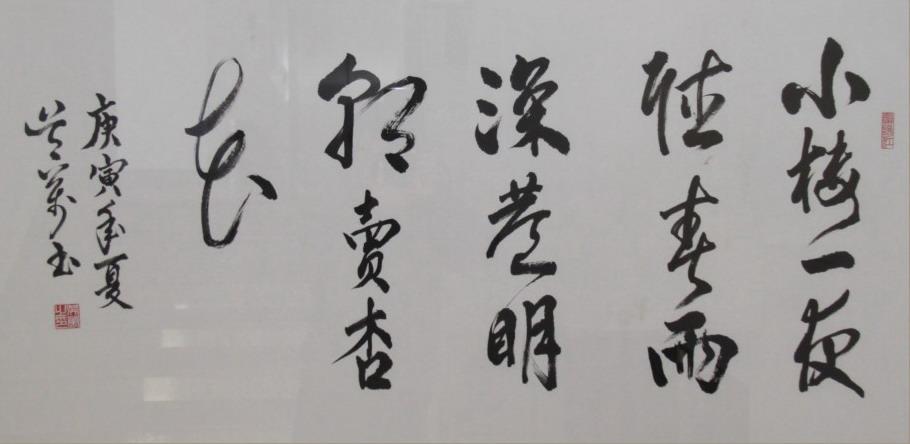 小楼一夜
聴春雨
深巷明
朝賣杏
花
庚寅年夏
萬玉